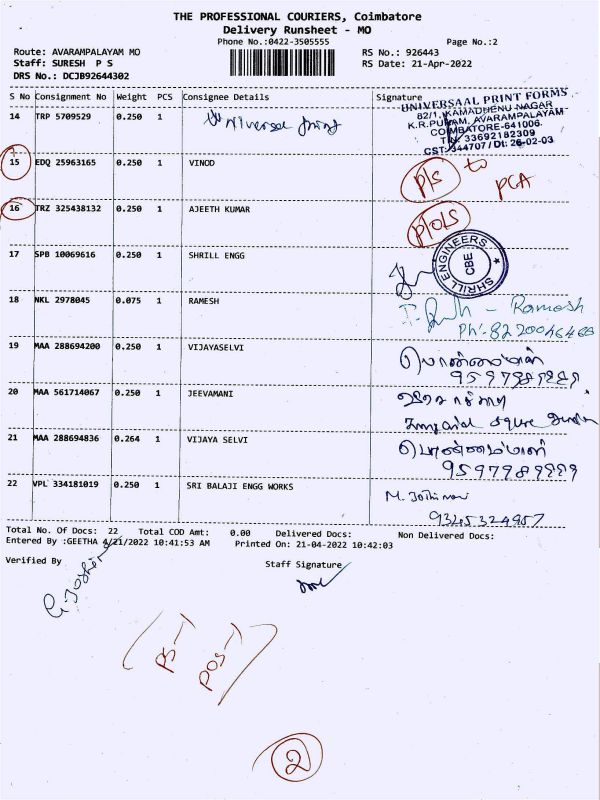 THE PROFESSIONAL COURIERS, Coimbatore
Delivery Runsheet - MO
Phone No.:0422-3505555
Page No.:2
Route: AVARAMPALAYAM MO
RS No.: 926443
Staff: SURESH P S
RS Date: 21-Apr-2022
DRS No.: DCJB92644302
S No Consignment No Weight PCS Consignee Details Signature
UNIVERSAAL PRINT FORMS
82/1, KAMADHENU NAGAR
K.R.PURAM, AVARAMPALAYAM
COIMBATORE-641006.
33692182309
CST: 344707 / Dt: 26-02-03
14 TRP 5709529 0.250 1
15 EDQ 25963165 0.250 1 VINOD P/s to PCA
16 TRZ 325438132 0.250 1 AJEETH KUMAR P/o/s
17 SPB 10069616 0.250 1 SHRILL ENGG
SHRILL ENGINEERS
CBE
18 NKL 2978045 0.075 1 RAMESH - Ramesh
19 MAA 288694200 0.250 1 VIJAYASELVI
20 MAA 561714067 0.250 1 JEEVAMANI
21 MAA 288694836 0.264 1 VIJAYA SELVI
22 VPL 334181019 0.250 1 SRI BALAJI ENGG WORKS
9345324957
Total No. Of Docs: 22 Total COD Amt: 0.00 Delivered Docs: Non Delivered Docs:
Entered By :GEETHA 4/21/2022 10:41:53 AM Printed On: 21-04-2022 10:42:03
Verified By
Staff Signature
PS-1
POS-1
2